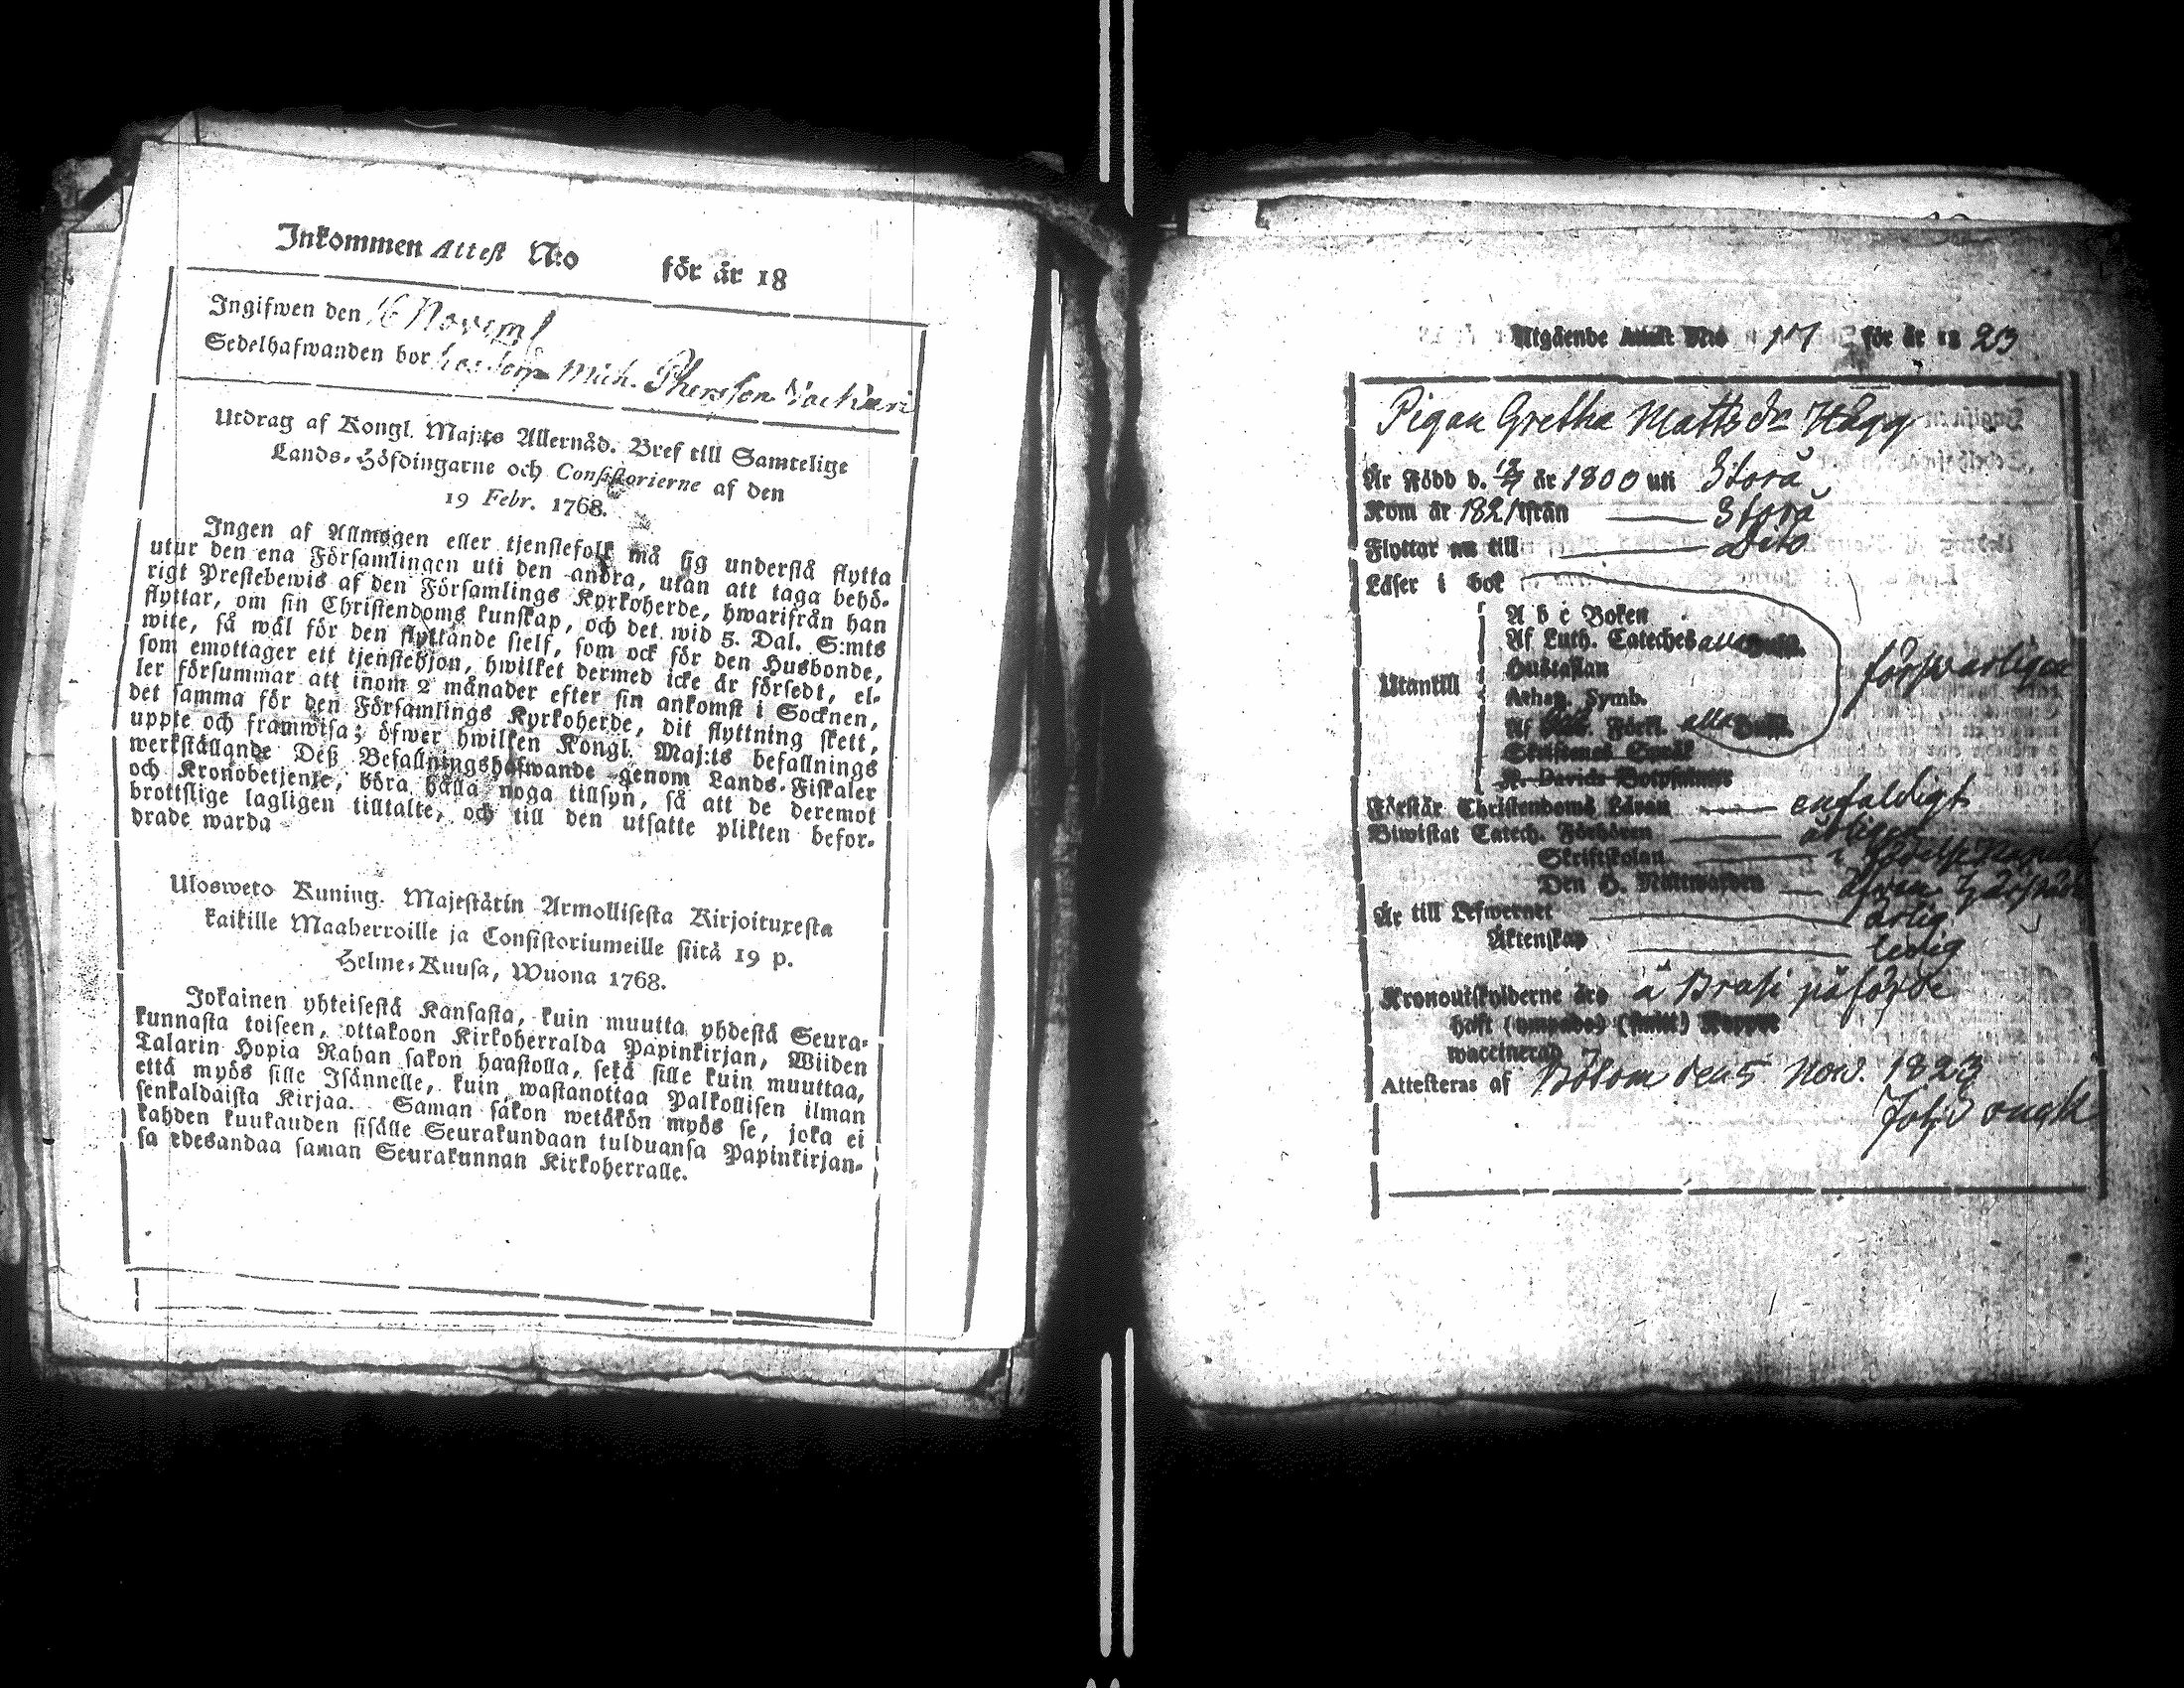 Inkommen Attest N:o för år 18
Ingifwen den 16 Novemb
Sedelhafwanden bor hos Mich. Phersson
Utdrag af Kongl. Maj:ts Allernåd. Bref till Samtelige
Lands-Höfdingarne och Consistorierne af den
19 Febr. 1768.
Ingen af Allmogen eller tjenstefolk må sig understå flytta
utur den ena Församlingen uti den andra, utan att taga behö-
rigt Prestebewis af den Församlings Kyrkoherde, hwarifrån han
flyttar, om sin Christendoms kunskap, och det wid 5. Dal. S:mts
wite, så wäl för den flyttande sielf, som ock för den Husbonde,
som emottager ett tjenstehjon, hwilket dermed icke är försedt, el-
ler försummar att inom 2 månader efter sin ankomst i Socknen,
det samma för den Församlings Kyrkoherde, dit flyttning skett,
uppte och framwisa; öfwer hwilken Kongl. Maj:ts befallnings
werkställande Deß Befallningshafwande genom Lands-Fiskaler
och Kronobetjente, böra hålla noga tillsyn, så att de deremot
brottslige lagligen tilltalte, och till den utsatte plikten befor-
drade warda
Ulosweto Kuning. Majestätin Armollisesta Kirjoituxesta
kaikille Maaherroille ja Consistoriumeille siitä 19 p.
Helme-Kuusa, Wuona 1768.
Jokainen yhteisestä Kansasta, kuin muutta yhdestä Seura-
kunnasta toiseen, ottakoon Kirkoherralda Papinkirjan, Wiiden
Talarin Hopia Rahan sakon haastolla, sekä sille kuin muuttaa,
että myös sille Isännelle, kuin wastanottaa Palkollisen ilman
senkaldaista Kirjaa. Saman sakon wetäkön myös se, joka ei
kahden kuukauden sisälle Seurakundaan tulduansa Papinkirjan-
sa edesandaa saman Seurakunnan Kirkoherralle.
Utgående Attest N:o 117 för år 18 23
Pigan Gretha Mattsdr Hägg
Är Född d. år 1800 uti Storå
Kom år 1821 ifrån Storå
Flyttar nu till Dito
Läser i bok
A b c Boken
Af Luth. Cateches alla
Hustaflan
Athan. Symb.
Utantill
försvarligen
Af Förkl. alla
Skriftenes Språk
K. Davids Botpsalmer
Förstår Christendoms Läran enfaldigt
Biwistat Catech. Förhören årligen
Skriftskolan i
Den H. Nattwarden äfven härstädes
Är till Lefwernet ärlig
Äktenskap ledig
Kronoutskylderne äro å Brasi påförde
haft (ympade) (smitt) Koppor
waccinerad
Attesteras af Bötom den 5 Nov. 1823